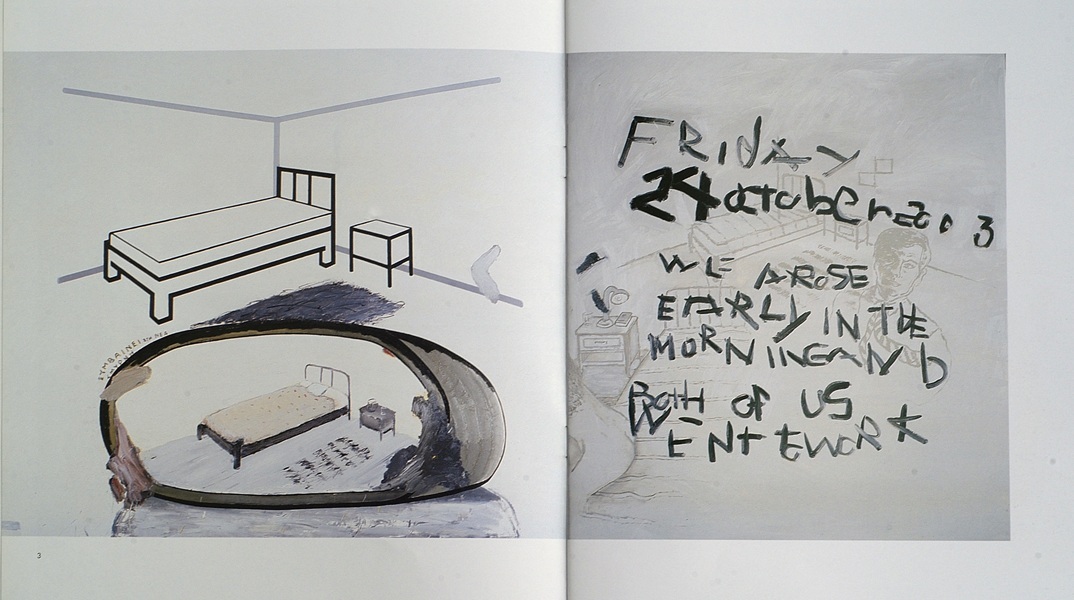 3
FRIdAy
24 octobEr 2003
WE AROSE
EARLy IN THE
MORNING AND
BOTH OF US
WENt tWORK